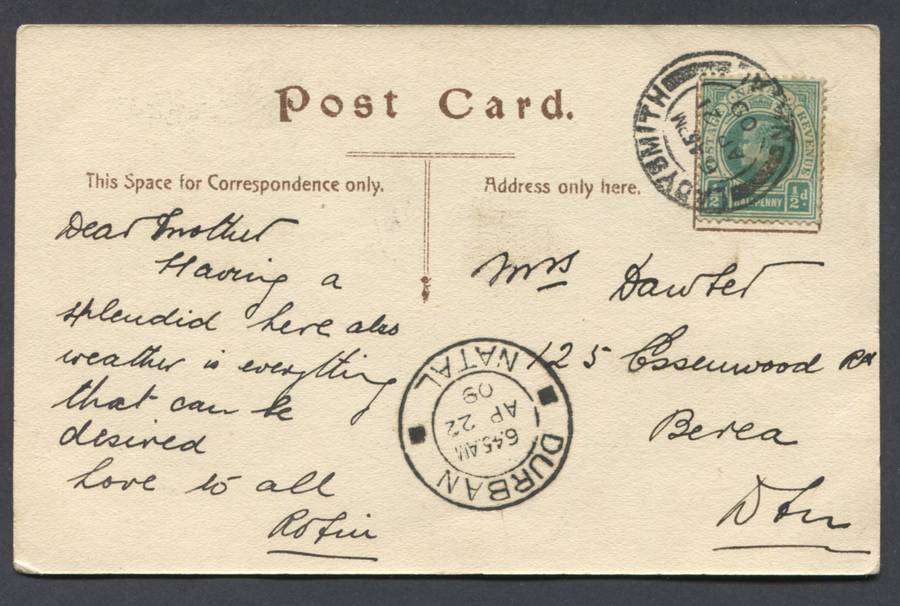 Post Card.
This Space for Correspondence only.
Address only here.
Dear Mother
Having a
splendid here also
weather is everything
that can be
desired
Love to all
Mrs Dawter
125 Essenwood Rd
Berea
Dbn
LADYSMITH
POSTAGE REVENUE
1/2 HALFPENNY 1/2d.
DURBAN
6.45.AM
AP 22
09
NATAL